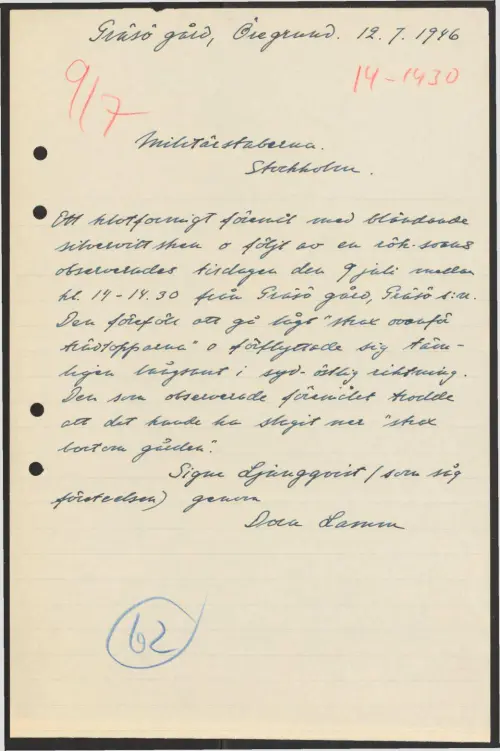 Gräsö gård, Öregrund. 12.7.1946
9/7
14-1430
Militärstaberna.
Stockholm.
Ett klotformigt föremål med bländande
silvervitt sken o följt av en rök-svans
observerades tisdagen den 9 juli mellan
kl. 14-14.30 från Gräsö gård, Gräsö s:n.
Den föreföll att gå lågt "strax ovanför
trädtopparna" o förflyttade sig täm-
ligen långsamt i syd-östlig riktning.
Den som observerade föremålet trodde
att det kunde ha slagit ner "strax
bortom gården".
Signe Ljungqvist (som såg
företeelsen) genom
Dora Lamm
62